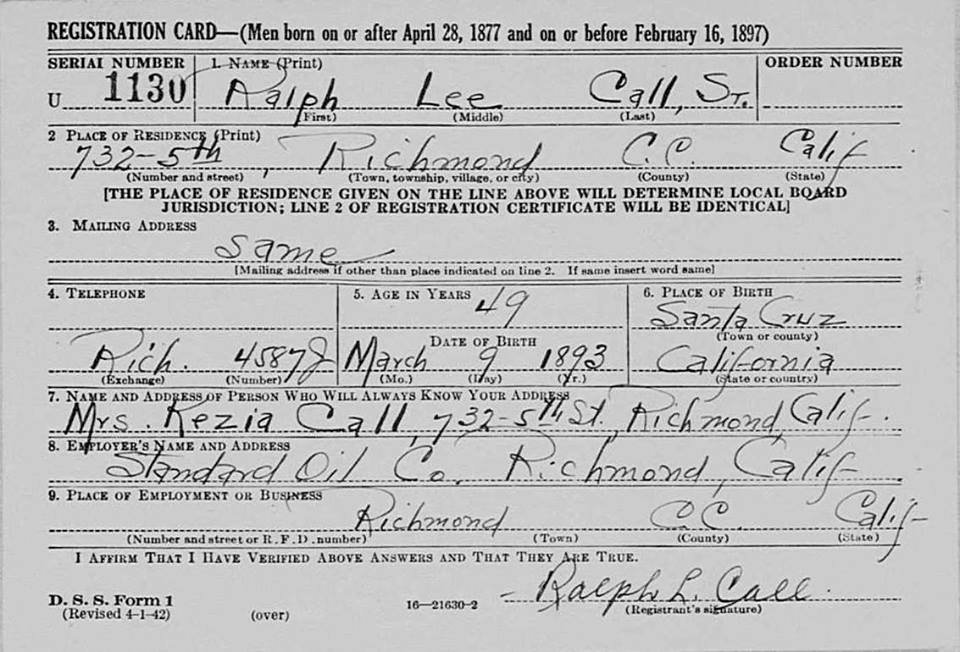 REGISTRATION CARD—(Men born on or after April 28, 1877 and on or before February 16, 1897)
SERIAL NUMBER 1. NAME (Print) ORDER NUMBER
U 1130 Ralph Lee Call, Sr.
(First) (Middle) (Last)
2 PLACE OF RESIDENCE (Print)
732-5th, Richmond C.C. Calif
(Number and street) (Town, township, village, or city) (County) (State)
[THE PLACE OF RESIDENCE GIVEN ON THE LINE ABOVE WILL DETERMINE LOCAL BOARD
JURISDICTION; LINE 2 OF REGISTRATION CERTIFICATE WILL BE IDENTICAL]
3. MAILING ADDRESS
same
[Mailing address if other than place indicated on line 2. If same insert word same]
4. TELEPHONE 5. AGE IN YEARS 6. PLACE OF BIRTH
49 Santa Cruz
(Town or county)
DATE OF BIRTH
Rich. 4587J March 9 1893 California
(Exchange) (Number) (Mo.) (Day) (Yr.) (State or country)
7. NAME AND ADDRESS OF PERSON WHO WILL ALWAYS KNOW YOUR ADDRESS
Mrs. Kezia Call, 732-5th St. Richmond, Calif.
8. EMPLOYER'S NAME AND ADDRESS
Standard Oil Co. Richmond, Calif
9. PLACE OF EMPLOYMENT OR BUSINESS
Richmond C.C. Calif
(Number and street or R. F. D. number) (Town) (County) (State)
I AFFIRM THAT I HAVE VERIFIED ABOVE ANSWERS AND THAT THEY ARE TRUE.
Ralph L. Call
D. S. S. Form 1 16—21630-2 (Registrant's signature)
(Revised 4-1-42) (over)